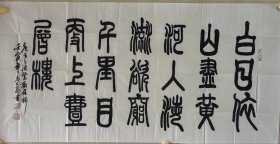 白日依
山盡黄
河入海
流欲窮
千里目
更上壹
層樓